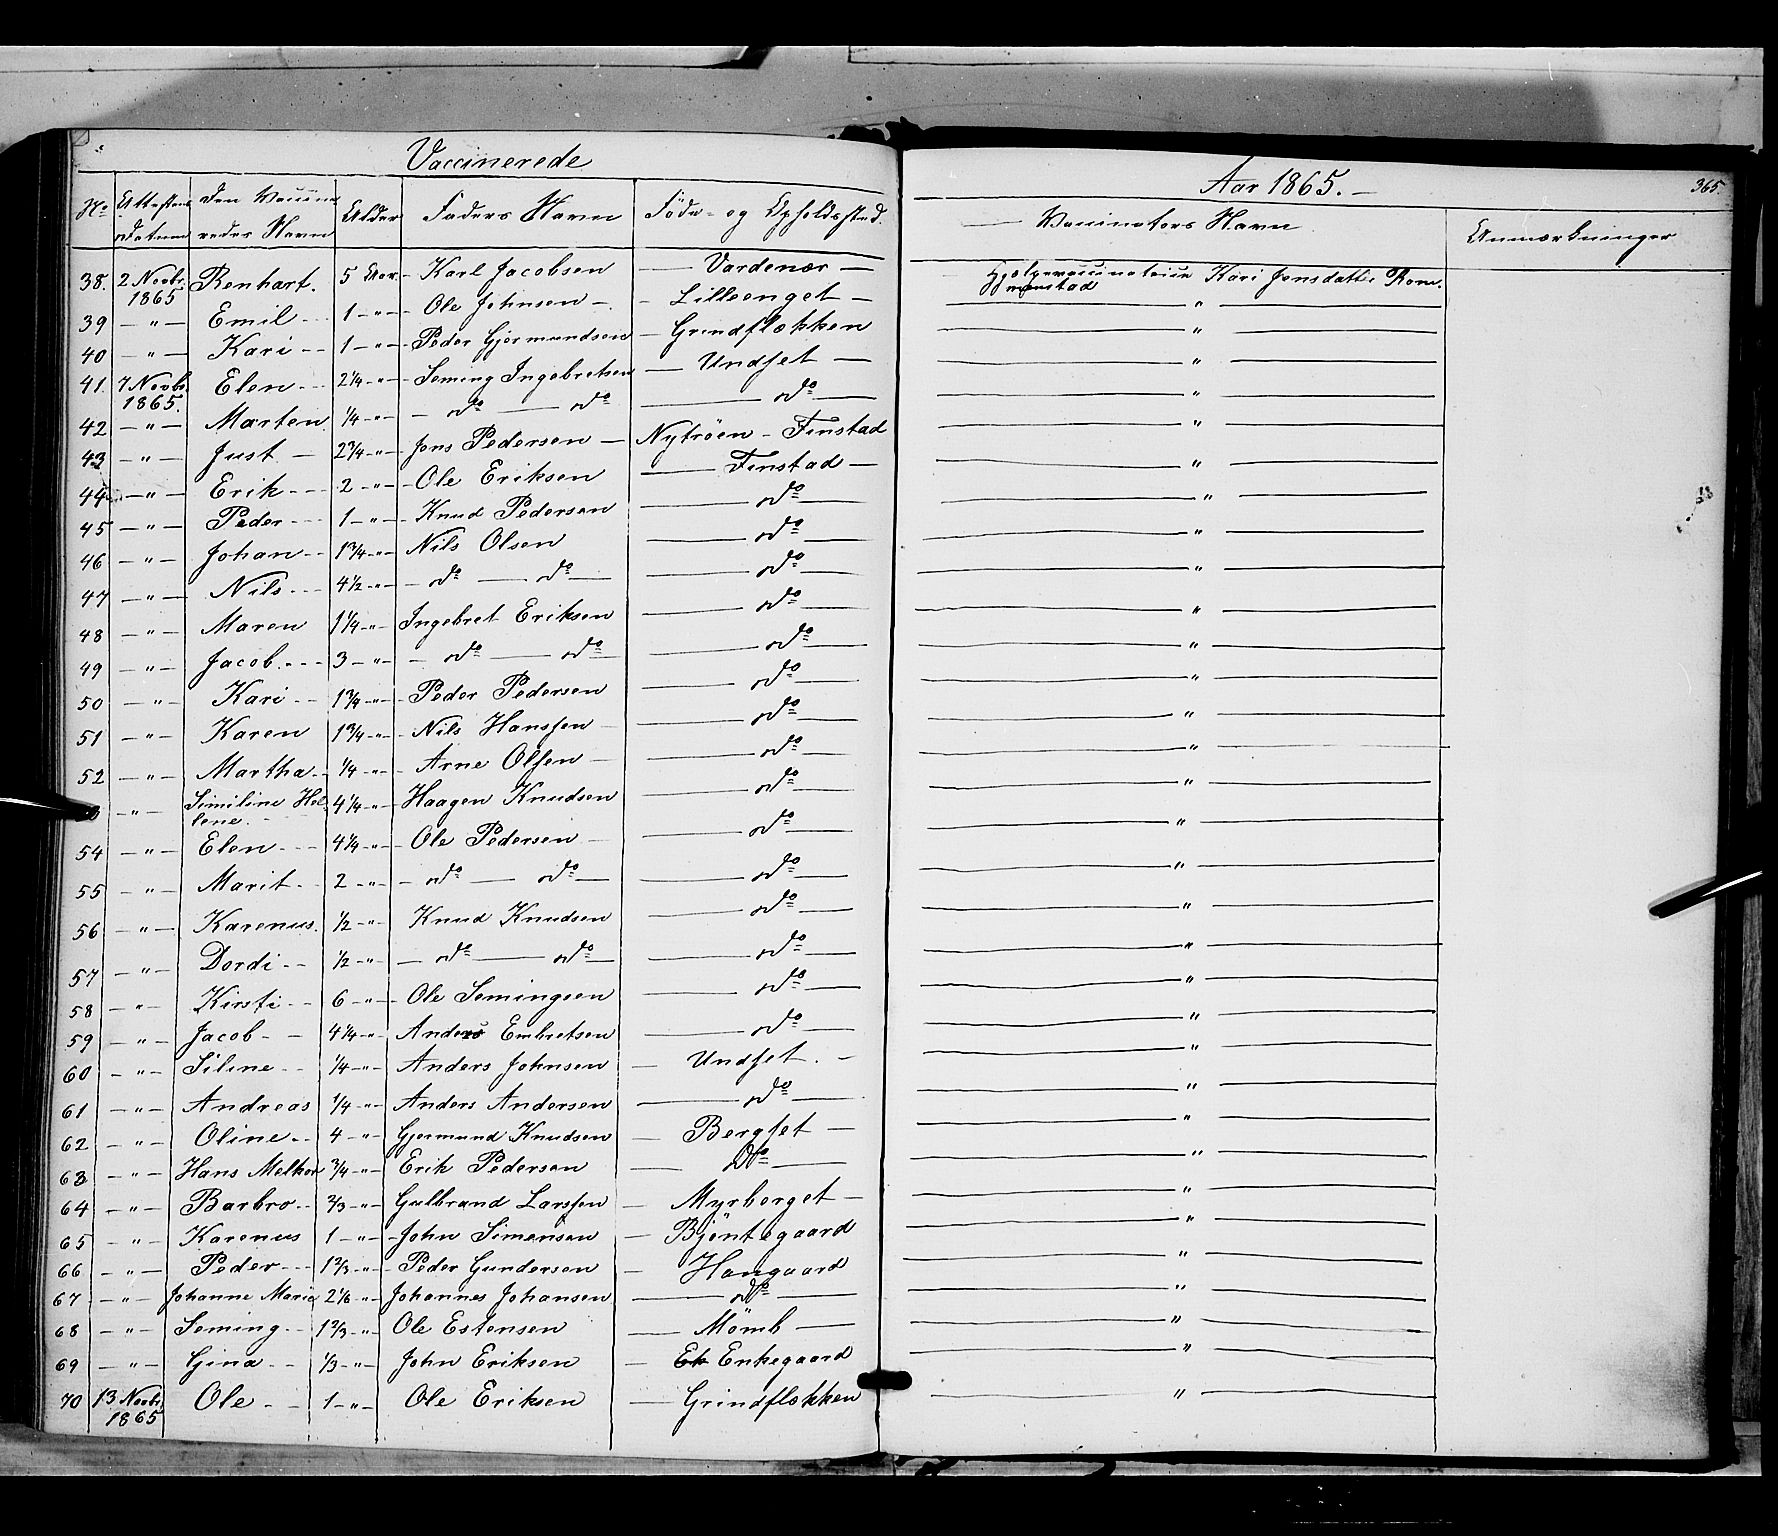 Vaccinerede
Aar 1865.
365.
No Attestens Datum Den Vaccineredes Navn Alder Faders Navn Føde- og Opholdssted.
Vaccinators Navn Anmærkninger
38. 2 Novbr. 1865 Renhart. 5 Aar. Karl Jacobsen — Vardenær — Hjelpevaccinatrise Kari Jonsdatter Rommenstad
39 — " — Emil 1 — " — Ole Johnsen — Lilleenget — "
40 — " — Kari 1 — " — Peder Gjermundsen — Grindflækken "
41. 7 Novbr. 1865. Elen 2 1/4 — " — Seming Ingebretsen — Undset — "
42 — " — Marten 1/4 — " — do — do — do — "
43 — " — Just 2 3/4 — " — Jons Pedersen — Nytrøen - Finstad "
44 — " — Erik 2 — " — Ole Eriksen — Finstad — "
45 — " — Peder 1 — " — Knud Pedersen — do — "
46 — " — Johan 1 3/4 — " — Nils Olsen — do — "
47 — " — Nils 4 1/2 — " — do — do — do — "
48 — " — Maren 1 1/4 — " — Ingebret Eriksen — do — "
49 — " — Jacob 3 — " — do — do — do — "
50 — " — Kari 1 3/4 — " — Peder Pedersen — do — "
51 — " — Karen 1 3/4 — " — Nils Hanssen — do — "
52 — " — Martha 1/4 — " — Arne Olsen — do — "
— " — Similine Hellene. 4 1/4 — " — Haagen Knudsen — do — "
54 — " — Elen 4 1/4 — " — Ole Pedersen — do — "
55 — " — Marit 2 — " — do — do — do — "
56 — " — Karenus. 1/2 — " — Knud Knudsen — do — "
57 — " — Dordi 1/2 — " — do — do — do — "
58 — " — Kirsti 6 — " — Ole Semingsen — do — "
59 — " — Jacob 4 1/4 — " — Anders Embretsen — do — "
60 — " — Siline 1/4 — " — Anders Johnsen — Undset. — "
61 — " — Andreas 1/4 — " — Anders Andersen — do — "
62 — " — Oline 4 — " — Gjermund Knudsen — Bergset — "
63 — " — Hans Melkior 3/4 — " — Erik Pedersen — do — "
64 — " — Barbro 2/3 — " — Gulbrand Larssen — Myrberget — "
65 — " — Karenus 1 — " — John Simensen — Bjöntegaard "
66 — " — Peder 1 2/3 — " — Peder Gundersen — Hangaard "
67 — " — Johanne Maria 2 1/6 — " — Johannes Johansen — do — "
68 — " — Seming 1 2/3 — " — Ole Estensen — Mömb — "
69 — " — Gina 1/3 — " — John Eriksen — Ek Enkegaard "
70 13 Novbr. 1865 Ole 1 — " — Ole Eriksen — Grindflækken "